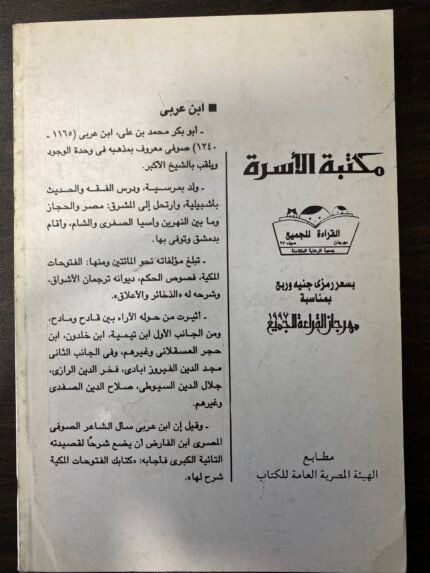 ■ ابن عربى
ـ أبو بكر محمد بن على، ابن عربى (١١٦٥ ـ
١٢٤٠) صوفى معروف بمذهبه فى وحدة الوجود
ويلقب بالشيخ الأكبر.
ـ ولد بمرسية، ودرس الفقه والحديث
بأشبيلية، وارتحل إلى المشرق: مصر والحجاز
وما بين النهرين وآسيا الصغرى والشام، وأقام
بدمشق وتوفى بها.
ـ تبلغ مؤلفاته نحو المائتين ومنها: الفتوحات
المكية، فصوص الحكم، ديوانه ترجمان الأشواق،
وشرحه له «الذخائر والأعلاق».
ـ أثيرت من حوله الآراء بين قادح ومادح،
ومن الجانب الأول ابن تيمية، ابن خلدون، ابن
حجر العسقلانى وغيرهم، وفى الجانب الثانى
مجد الدين الفيروز ابادى، فخر الدين الرازى،
جلال الدين السيوطى، صلاح الدين الصفدى
وغيرهم.
ـ وقيل إن ابن عربى سأل الشاعر الصوفى
المصرى ابن الفارض أن يضع شرحًا لقصيدته
التائية الكبرى فأجابه: «كتابك الفتوحات المكية
شرح لها».
مكتبة الأسرة
القراءة للجميع
مهرجان صيف ٩٧
جمعية الرعاية المتكاملة
بسعر رمزى جنيه وربع
بمناسبة
مهرجان القراءة للجميع ١٩٩٧
مطابع
الهيئة المصرية العامة للكتاب